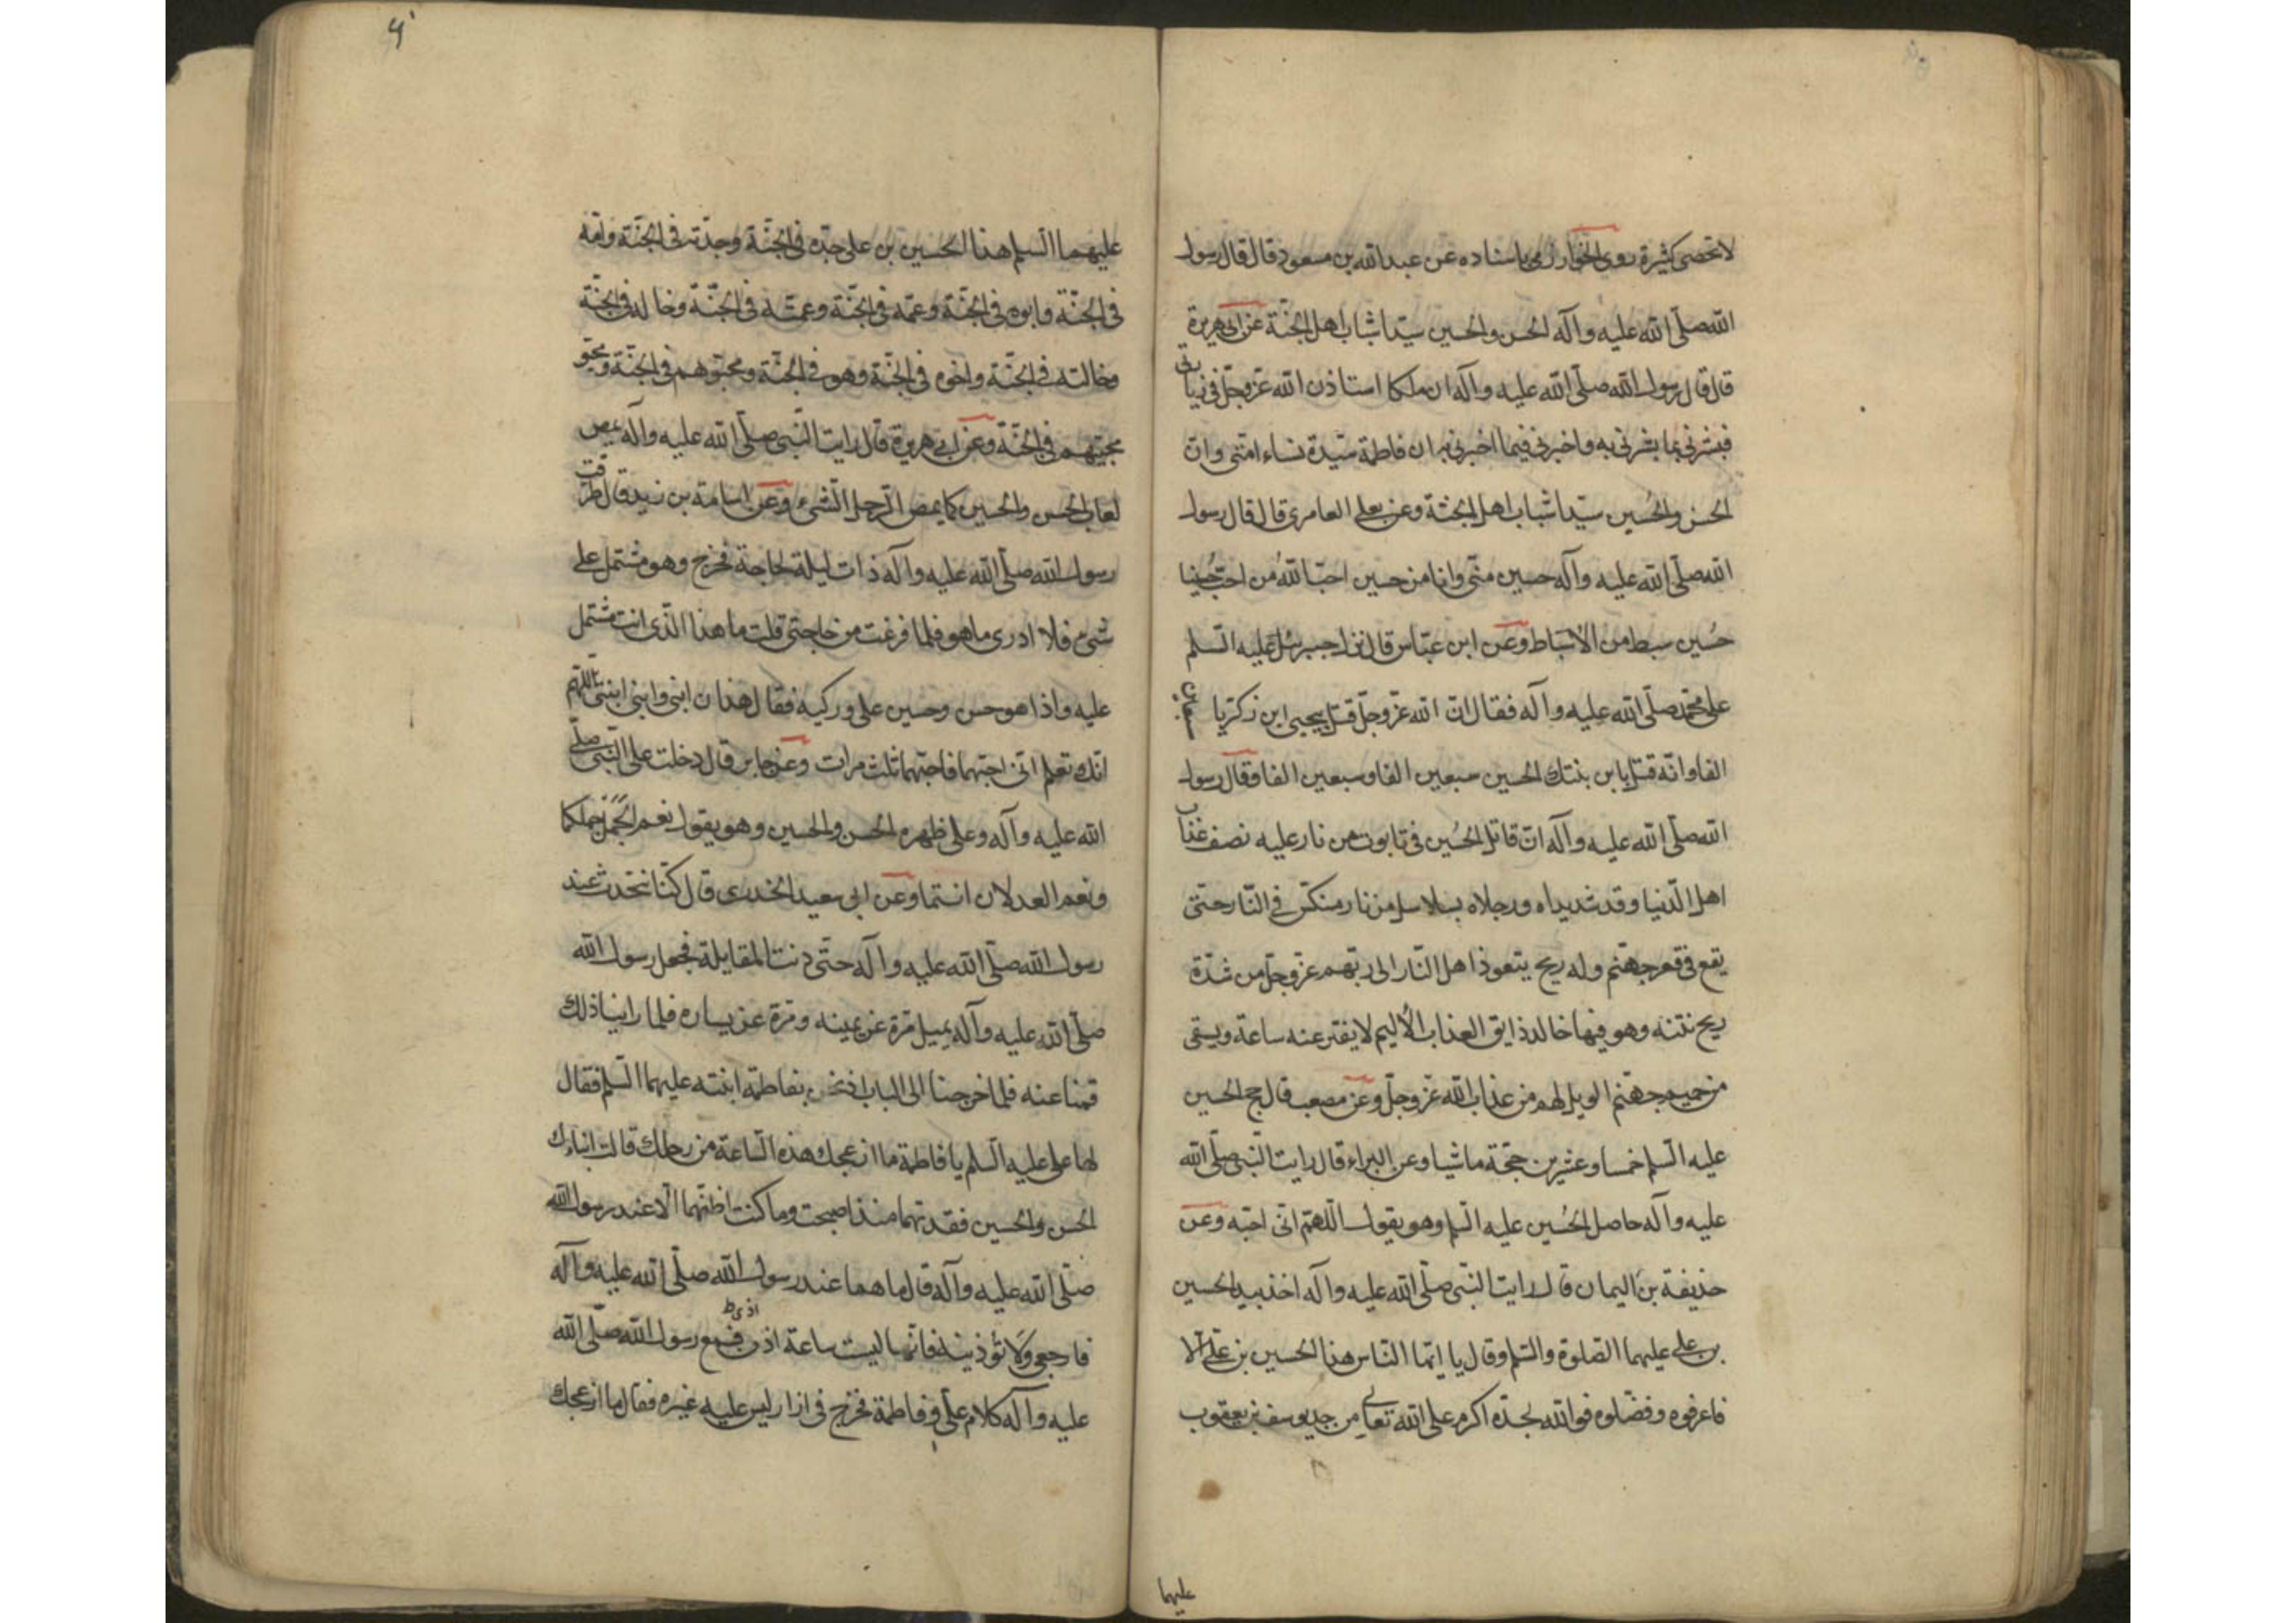 لا تحصى كثيرة روى الخوارزمى باسناده عن عبد الله بن مسعود قال قال رسول
الله صلّى الله عليه وآله الحسن والحسين سيّدا شباب اهل الجنّة عن ابى هريرة
قال قال رسول الله صلّى الله عليه وآله ان ملكا استاذن الله عزّ وجلّ فى زيارتى
فبشرنى بما بشرنى به واخبرنى فيما اخبرنى به ان فاطمة سيّدة نساء امّتى وانّ
الحسن والحُسين سيّدا شباب اهل الجنّة وعن يعلى العامرى قال قال رسول
الله صلّى الله عليه وآله حسين منّى وانا من حسين احبّ اللّه من احبّ حُسينا
حُسين سبط من الأسباط وعن ابن عبّاس قال نزل جبرئيل عليه السّلم
على محمّد صلّى الله عليه وآله فقال انّ الله عزّ وجلّ قتل بيحيى ابن زكريّا سبعين
الفا وانّه قتل بابن بنتك الحسين سبعين الفا وسبعين الفا وقال رسول
الله صلّى الله عليه وآله انّ قاتل الحُسين فى تابوت من نار عليه نصف عذاب
اهل الدّنيا وقد شد يداه ورجلاه بسلاسل من نار منكّس فى النّار حتّى
يقع فى قعر جهنّم وله ريح يتعوذ اهل النّار الى ربّهم عزّ وجلّ من شدّة
ريح نتنه وهو فيها خالد ذايق العذاب الأليم لا يفتر عنه ساعة ويسقى
من حميم جهنّم الويل لهم من عذاب الله عزّ وجلّ وعن مصعب قال حج الحسين
عليه السّلم خمسا وعشرين حجّة ماشيا وعن البراء قال رايت النّبى صلّى الله
عليه وآله حاصل الحُسين عليه السّلم وهو يقول اللّهمّ انّى احبّه وعن
حذيفة بن اليمان قال رايت النّبى صلّى الله عليه وآله اخذ بيد الحسين
بن على عليهما الصّلوة والسّلم وقال يا ايّها النّاس هذا الحسين بن على الا
فاعرفوه وفضّلوه فوالله لجدّه اكرم على الله تعالى من جد يوسف بن يعقوب
عليهما
عليهما السّلم هذا الحسين بن على جدّه فى الجنّة وجدّته فى الجنّة وامّه
فى الجنّة وابوه فى الجنّة وعمّه فى الجنّة وعمّته فى الجنّة وخاله فى الجنّة
وخالته فى الجنّة واخوه فى الجنّة وهو فى الجنّة ومحبّوهم فى الجنّة ومحبّو
محبّيهم فى الجنّة وعن ابى هريرة قال رايت النّبى صلّى الله عليه وآله يمص
لعاب الحسن والحسين كما يمص الرّجل الشّىء وعن اسامة بن زيد قال طرقت
رسول الله صلّى الله عليه وآله ذات ليلة لحاجة فخرج وهو مشتمل على
شىء فلا ادرى ما هو فلما فرغت من حاجتى قلت ما هذا الّذى انت مشتمل
عليه واذا هو حسن وحسين على وركيه فقال هذان ابنى وابنى ابنتى اللّهم
انّك تعلم انّى احبّهما فاحبّهما ثلث مرات وعن جابر قال دخلت على النّبى صلّى
الله عليه وآله وعلى ظهره الحسن والحسين وهو يقول نعم الجَمل جملكما
ونعم العدلان انتما وعن ابى سعيد الخدرى قال كنّا نتحدث عند
رسول الله صلّى الله عليه وآله حتّى دنت المقايلة فجعل رسول الله
صلّى الله عليه وآله يميل مرّة عن يمينه ومرّة عن يساره فلما راينا ذلك
قمنا عنه فلما خرجنا الى الباب اذ نحن بفاطمة ابنته عليهما السّلم فقال
لها على عليه السّلم يا فاطمة ما ازعجك هذه السّاعة من رحلك قالت ابناءك
الحسن والحسين فقدتهما منذ اصبحت وما كنت اظنّهما الّا عند رسول الله
صلّى الله عليه وآله قال ما هما عند رسول الله صلّى الله عليه وآله
فارجعى ولا تؤذينه فانّها ليست ساعة اذن فسمع رسول الله صلّى الله
عليه وآله كلام على وفاطمة فخرج فى ازار ليس عليه غيره فقال ما ازعجك